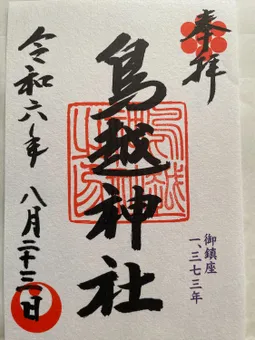 奉拝
鳥越神社
御鎮座
一、三七三年
令和六年 八月二十三日